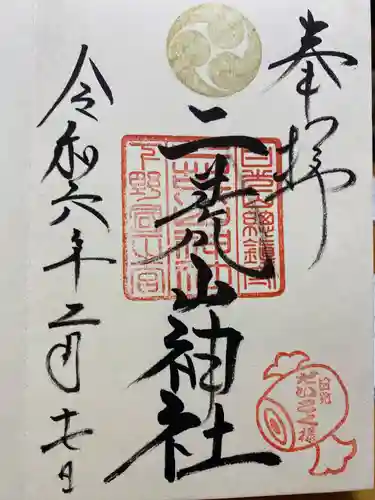 奉拝
二荒山神社
令和六年二月十七日